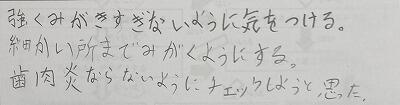 強くみがきすぎないように気をつける。
細かい所までみがくようにする。
歯肉炎ならないようにチェックしようと思った。